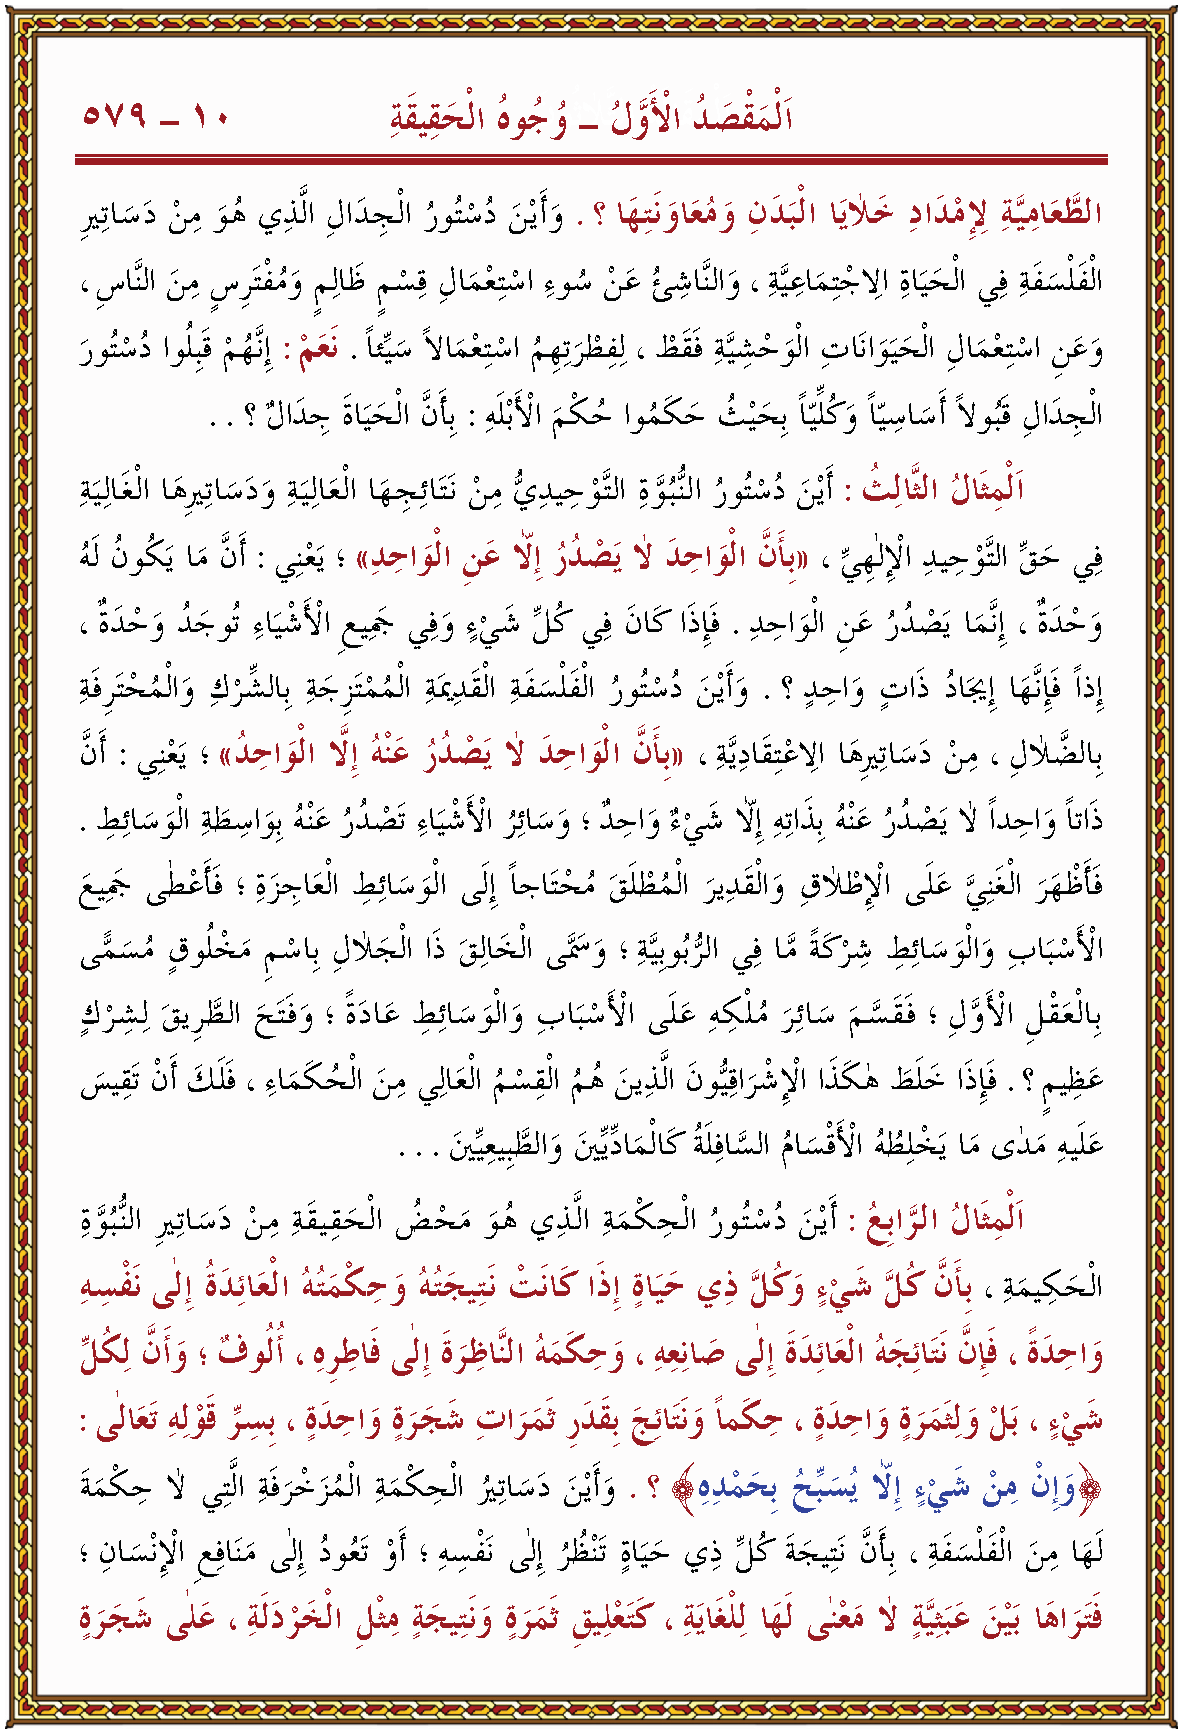 اَلْمَقْصَدُ الْأَوَّلُ – وُجُوهُ الْحَقِيقَةِ ١٠ – ٥٧٩
الطَّعَامِيَّةِ لِإِمْدَادِ خَلاٰيَا الْبَدَنِ وَمُعَاوَنَتِهَا ؟ . وَأَيْنَ دُسْتُورُ الْجِدَالِ الَّذِي هُوَ مِنْ دَسَاتِيرِ
الْفَلْسَفَةِ فِي الْحَيَاةِ الِاجْتِمَاعِيَّةِ ، وَالنَّاشِئُ عَنْ سُوءِ اسْتِعْمَالِ قِسْمٍ ظَالِمٍ وَمُفْتَرِسٍ مِنَ النَّاسِ ،
وَعَنِ اسْتِعْمَالِ الْحَيَوَانَاتِ الْوَحْشِيَّةِ فَقَطْ ، لِفِطْرَتِهِمُ اسْتِعْمَالاً سَيِّئاً . نَعَمْ : إِنَّهُمْ قَبِلُوا دُسْتُورَ
الْجِدَالِ قُبُولاً أَسَاسِيّاً وَكُلِّيّاً بِحَيْثُ حَكَمُوا حُكْمَ الْأَبْلَهِ : بِأَنَّ الْحَيَاةَ جِدَالٌ ؟ . .
اَلْمِثَالُ الثَّالِثُ : أَيْنَ دُسْتُورُ النُّبُوَّةِ التَّوْحِيدِيُّ مِنْ نَتَائِجِهَا الْعَالِيَةِ وَدَسَاتِيرِهَا الْغَالِيَةِ
فِي حَقِّ التَّوْحِيدِ الْإِلٰهِيِّ ، «بِأَنَّ الْوَاحِدَ لاٰ يَصْدُرُ إِلاّٰ عَنِ الْوَاحِدِ» ؛ يَعْنِي : أَنَّ مَا يَكُونُ لَهُ
وَحْدَةٌ ، إِنَّمَا يَصْدُرُ عَنِ الْوَاحِدِ . فَإِذَا كَانَ فِي كُلِّ شَيْءٍ وَفِي جَمِيعِ الْأَشْيَاءِ تُوجَدُ وَحْدَةٌ ،
إِذاً فَإِنَّهَا إِيجَادُ ذَاتٍ وَاحِدٍ ؟ . وَأَيْنَ دُسْتُورُ الْفَلْسَفَةِ الْقَدِيمَةِ الْمُمْتَزِجَةِ بِالشِّرْكِ وَالْمُحْتَرِفَةِ
بِالضَّلاٰلِ ، مِنْ دَسَاتِيرِهَا الِاعْتِقَادِيَّةِ ، «بِأَنَّ الْوَاحِدَ لاٰ يَصْدُرُ عَنْهُ إِلاَّ الْوَاحِدُ» ؛ يَعْنِي : أَنَّ
ذَاتاً وَاحِداً لاٰ يَصْدُرُ عَنْهُ بِذَاتِهِ إِلاّٰ شَيْءٌ وَاحِدٌ ؛ وَسَائِرُ الْأَشْيَاءِ تَصْدُرُ عَنْهُ بِوَاسِطَةِ الْوَسَائِطِ .
فَأَظْهَرَ الْغَنِيَّ عَلَى الْإِطْلاٰقِ وَالْقَدِيرَ الْمُطْلَقَ مُحْتَاجاً إِلَى الْوَسَائِطِ الْعَاجِزَةِ ؛ فَأَعْطٰى جَمِيعَ
الْأَسْبَابِ وَالْوَسَائِطِ شِرْكَةً مَّا فِي الرُّبُوبِيَّةِ ؛ وَسَمَّى الْخَالِقَ ذَا الْجَلاٰلِ بِاسْمِ مَخْلُوقٍ مُسَمًّى
بِالْعَقْلِ الْأَوَّلِ ؛ فَقَسَّمَ سَائِرَ مُلْكِهِ عَلَى الْأَسْبَابِ وَالْوَسَائِطِ عَادَةً ؛ وَفَتَحَ الطَّرِيقَ لِشِرْكٍ
عَظِيمٍ ؟ . فَإِذَا خَلَطَ هٰكَذَا الْإِشْرَاقِيُّونَ الَّذِينَ هُمُ الْقِسْمُ الْعَالِي مِنَ الْحُكَمَاءِ ، فَلَكَ أَنْ تَقِيسَ
عَلَيْهِ مَدٰى مَا يَخْلِطُهُ الْأَقْسَامُ السَّافِلَةُ كَالْمَادِّيِّينَ وَالطَّبِيعِيِّينَ . . .
اَلْمِثَالُ الرَّابِعُ : أَيْنَ دُسْتُورُ الْحِكْمَةِ الَّذِي هُوَ مَحْضُ الْحَقِيقَةِ مِنْ دَسَاتِيرِ النُّبُوَّةِ
الْحَكِيمَةِ ، بِأَنَّ كُلَّ شَيْءٍ وَكُلَّ ذِي حَيَاةٍ إِذَا كَانَتْ نَتِيجَتُهُ وَحِكْمَتُهُ الْعَائِدَةُ إِلٰى نَفْسِهِ
وَاحِدَةً ، فَإِنَّ نَتَائِجَهُ الْعَائِدَةَ إِلٰى صَانِعِهِ ، وَحِكَمَهُ النَّاظِرَةَ إِلٰى فَاطِرِهِ ، أُلُوفٌ ؛ وَأَنَّ لِكُلِّ
شَيْءٍ ، بَلْ وَلِثَمَرَةٍ وَاحِدَةٍ ، حِكَماً وَنَتَائِجَ بِقَدَرِ ثَمَرَاتِ شَجَرَةٍ وَاحِدَةٍ ، بِسِرِّ قَوْلِهِ تَعَالٰى :
﴿وَإِنْ مِنْ شَيْءٍ إِلاّٰ يُسَبِّحُ بِحَمْدِهِ﴾ ؟ . وَأَيْنَ دَسَاتِيرُ الْحِكْمَةِ الْمُزَخْرَفَةِ الَّتِي لاٰ حِكْمَةَ
لَهَا مِنَ الْفَلْسَفَةِ ، بِأَنَّ نَتِيجَةَ كُلِّ ذِي حَيَاةٍ تَنْظُرُ إِلٰى نَفْسِهِ ؛ أَوْ تَعُودُ إِلٰى مَنَافِعِ الْإِنْسَانِ ؛
فَتَرَاهَا بَيْنَ عَبَثِيَّةٍ لاٰ مَعْنٰى لَهَا لِلْغَايَةِ ، كَتَعْلِيقِ ثَمَرَةٍ وَنَتِيجَةٍ مِثْلِ الْخَرْدَلَةِ ، عَلٰى شَجَرَةٍ